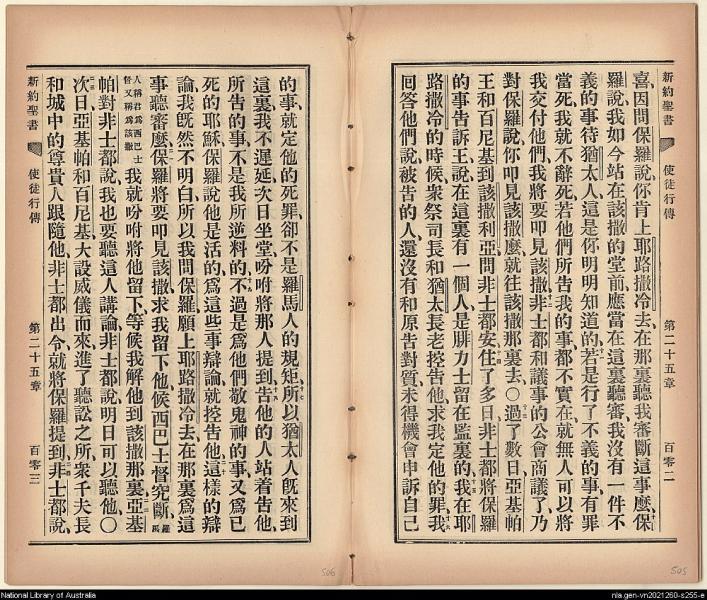 新約聖書 使徒行傳 第二十五章 百零二
喜、因問保羅說、你肯上耶路撒冷去、在那裏聽我審斷這事麼、保
羅說、我如今站在該撒的堂前、應當在這裏聽審、我沒有一件不
義的事待猶太人、這是你明明知道的、若是行了不義的事、有罪
當死、我就不辭死、若他們所告我的事、都不實在、就無人可以將
我交付他們、我將要叩見該撒、非士都和議事的公會商議了、乃
對保羅說、你叩見該撒麼、就往該撒那裏去○過了數日、亞基帕
王和百尼基到該撒利亞、問非士都安、住了多日、非士都將保羅
的事告訴王說、在這裏有一個人、是腓力士留在監裏的、我在耶
路撒冷的時候、衆祭司長和猶太長老控告他、求我定他的罪、我
回答他們說、被告的人、還沒有和原告對質、未得機會申訴自己
的事、就定他的死罪、卻不是羅馬人的規矩、所以猶太人旣來到
這裏、我不遲延、次日坐堂、吩咐將那人提到、告他的人站着告他、
所告的事、不是我所逆料的、不過是爲他們敬鬼神的事、又爲已
死的耶穌、保羅說他是活的、爲這些事辯論、就控告他、這樣的辯
論、我旣然不明白、所以我問保羅、願上耶路撒冷去、在那裏爲這
事聽審麼、保羅將要叩見該撒、求我留下他、候西巴士督究斷、羅馬
人稱君爲西巴士督又稱爲該撒 我就吩咐將他留下、等候我解他到該撒那裏、亞基
帕對非士都說、我也要聽這人講論、非士都說、明日可以聽他、○
次日、亞基帕和百尼基大設威儀而來、進了聽訟之所、衆千夫長
和城中的尊貴人跟隨他、非士都出令、就將保羅提到、非士都說、
新約聖書 使徒行傳 第二十五章 百零三
506
505
National Library of Australia
nla.gen-vn2021260-s255-e